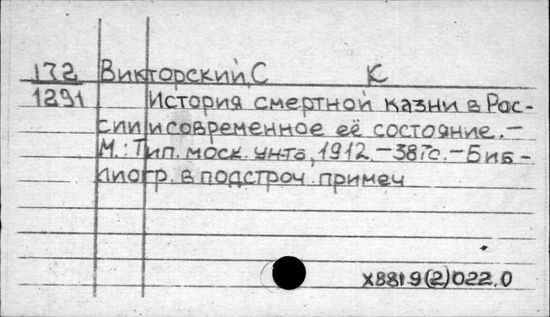 172 Викторский, С К
1291 История смертной казни в Рос-
сии и современное её состояние. –
М.: Тип. моск. унта, 1912. – 387с. – Биб-
лиогр. в подстроч. примеч
X8819(2)022.0